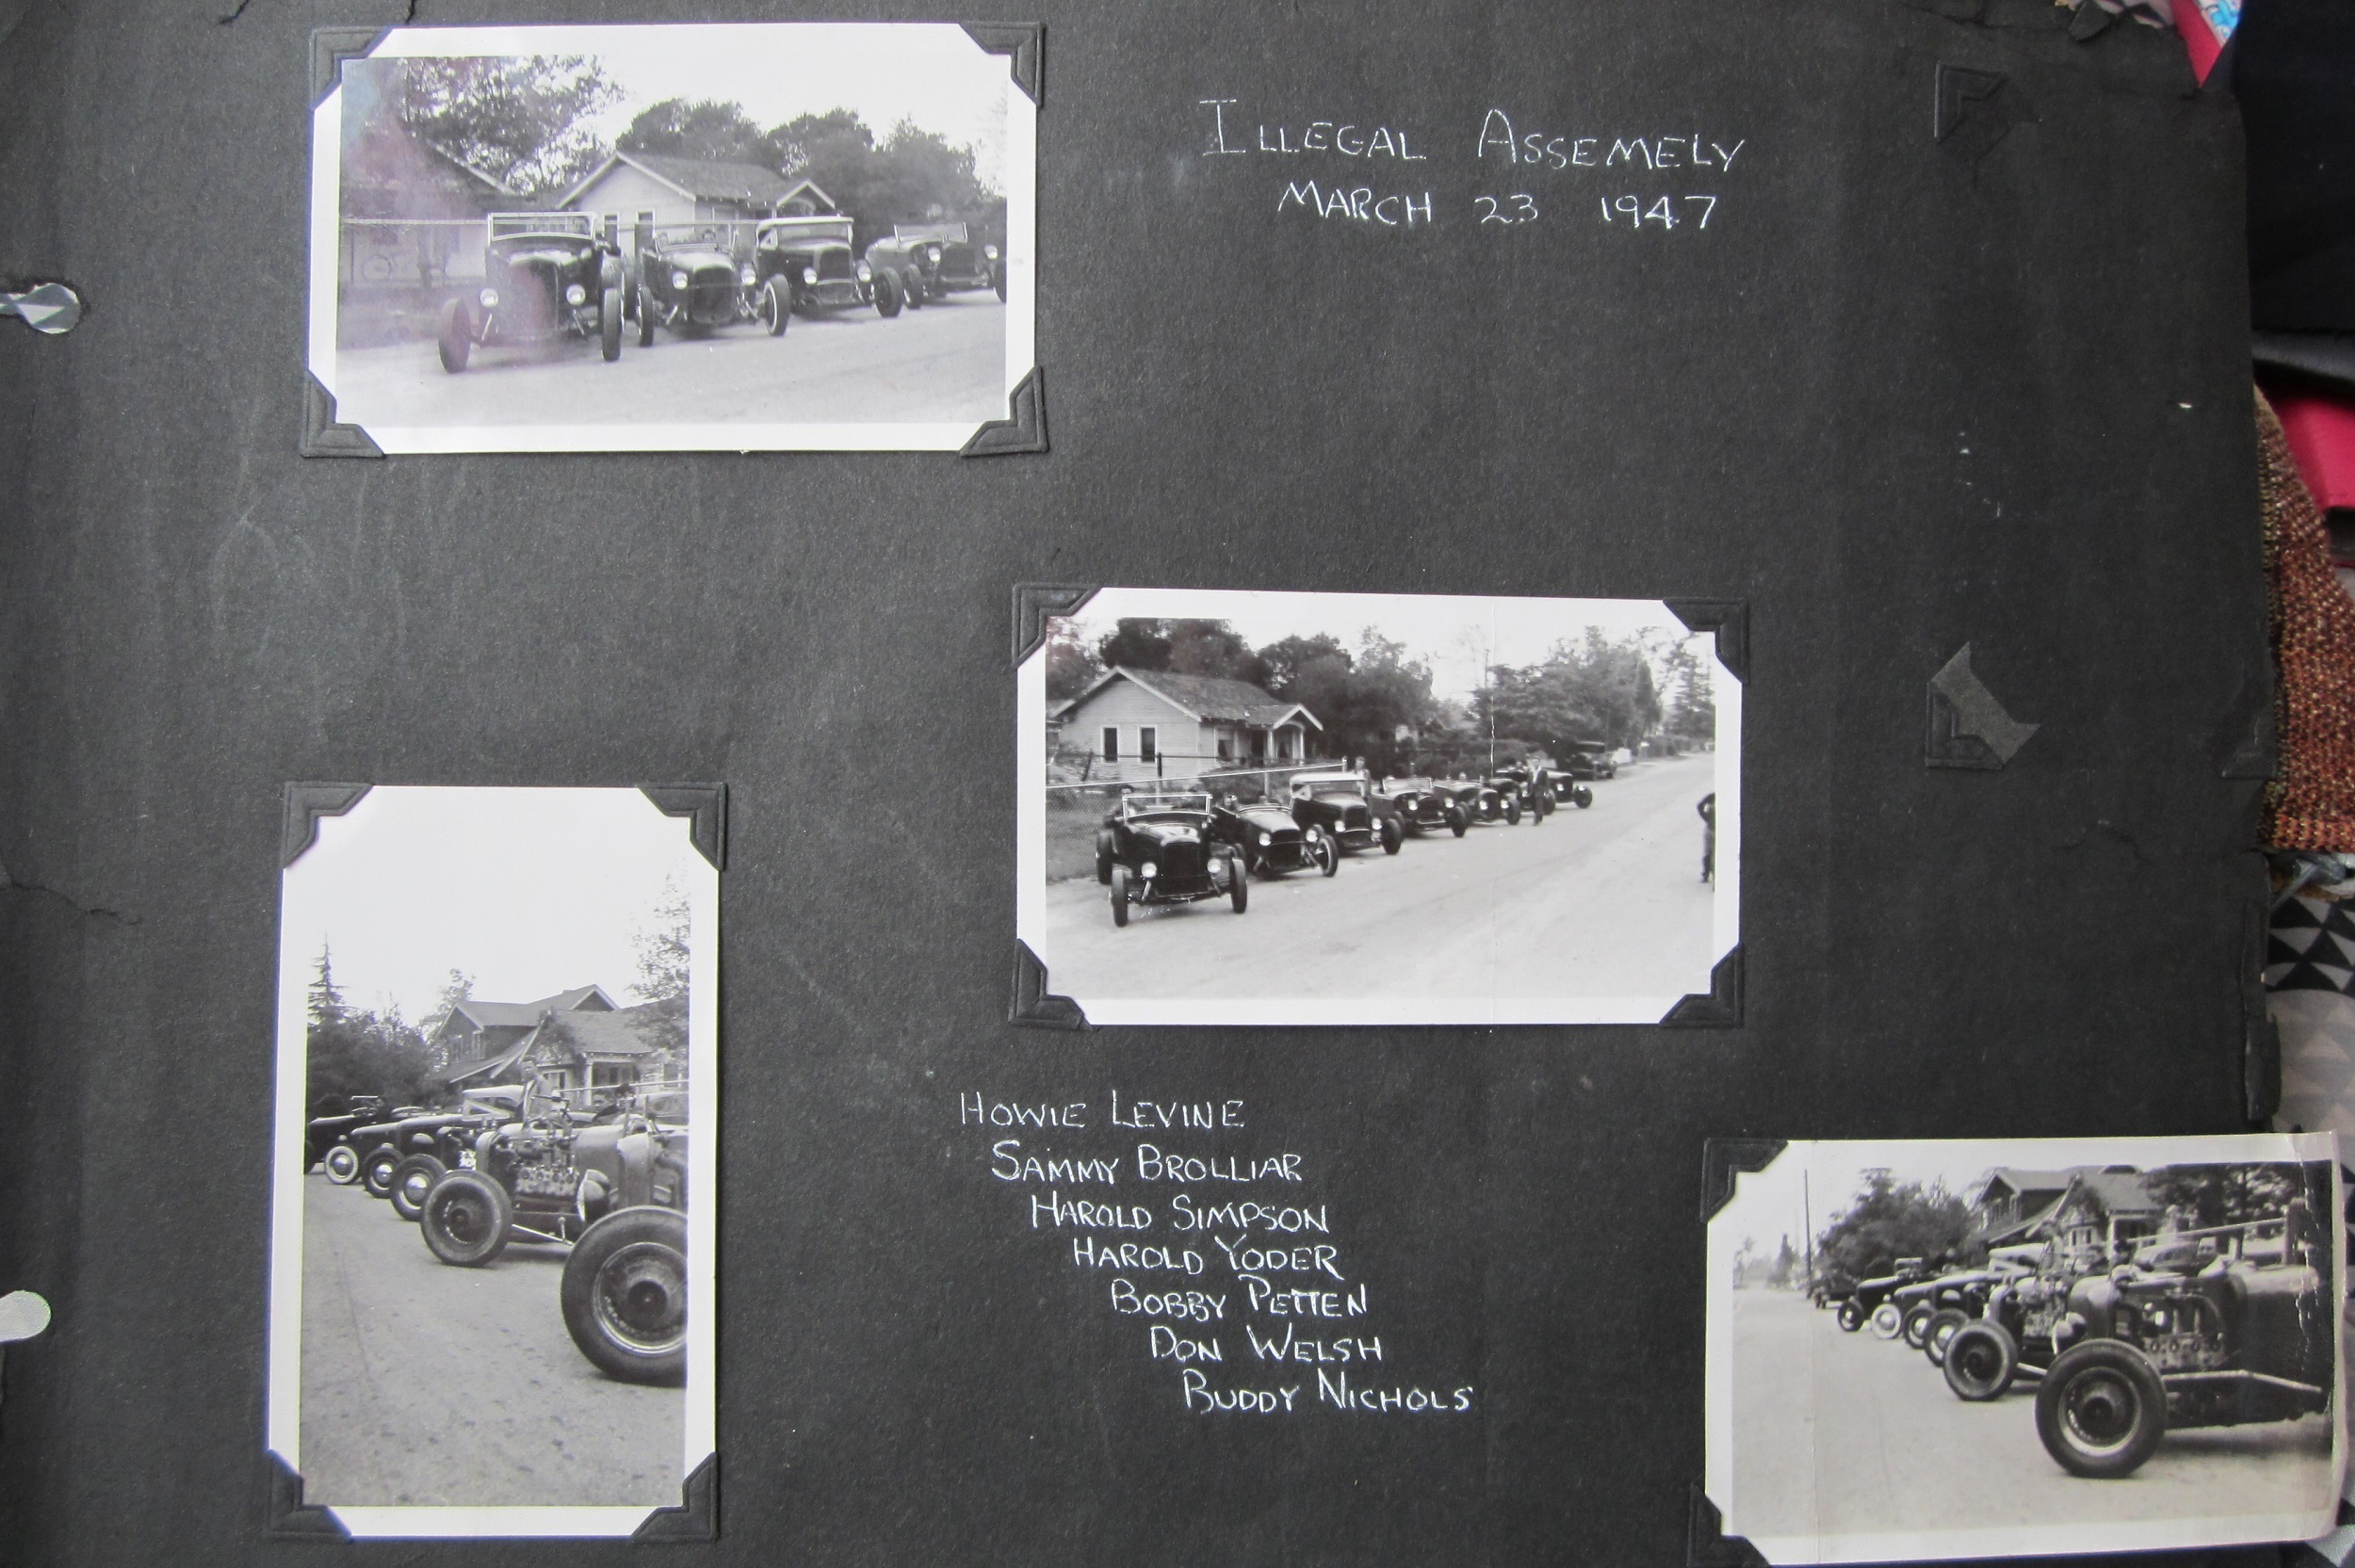 ILLEGAL ASSEMELY
MARCH 23 1947
HOWIE LEVINE
SAMMY BROLLIAR
HAROLD SIMPSON
HAROLD YODER
BOBBY PETTEN
DON WELSH
BUDDY NICHOLS